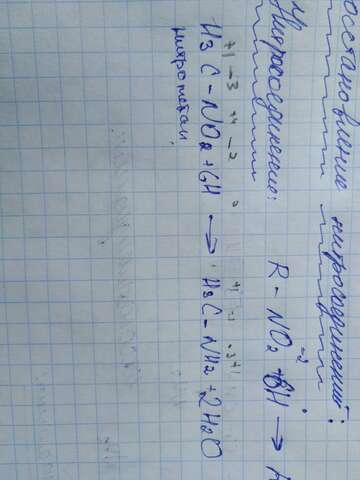 осстановление нитросоединений:
Нитросоединение: R - NO₂ + 6H →
+1 -3 +4 -2 0 +1
H₃C - NO₂ + 6H → H₃C - NH₂ + 2H₂O
нитрометан